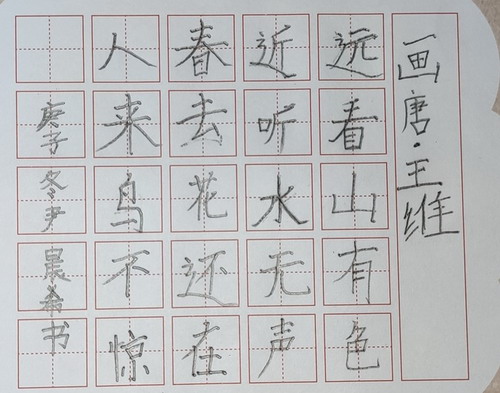 画唐·王维
远看山有色
近听水无声
春去花还在
人来鸟不惊
庚子冬尹晨希书